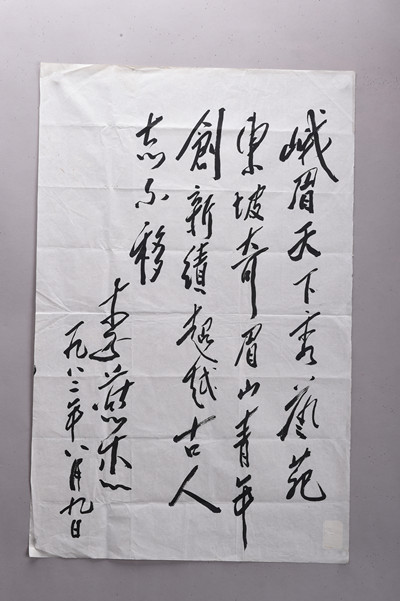 峨眉天下秀藝苑
東坡奇眉山青年
創新績超越古人
志不移
李燕杰
一九八二年八月九日